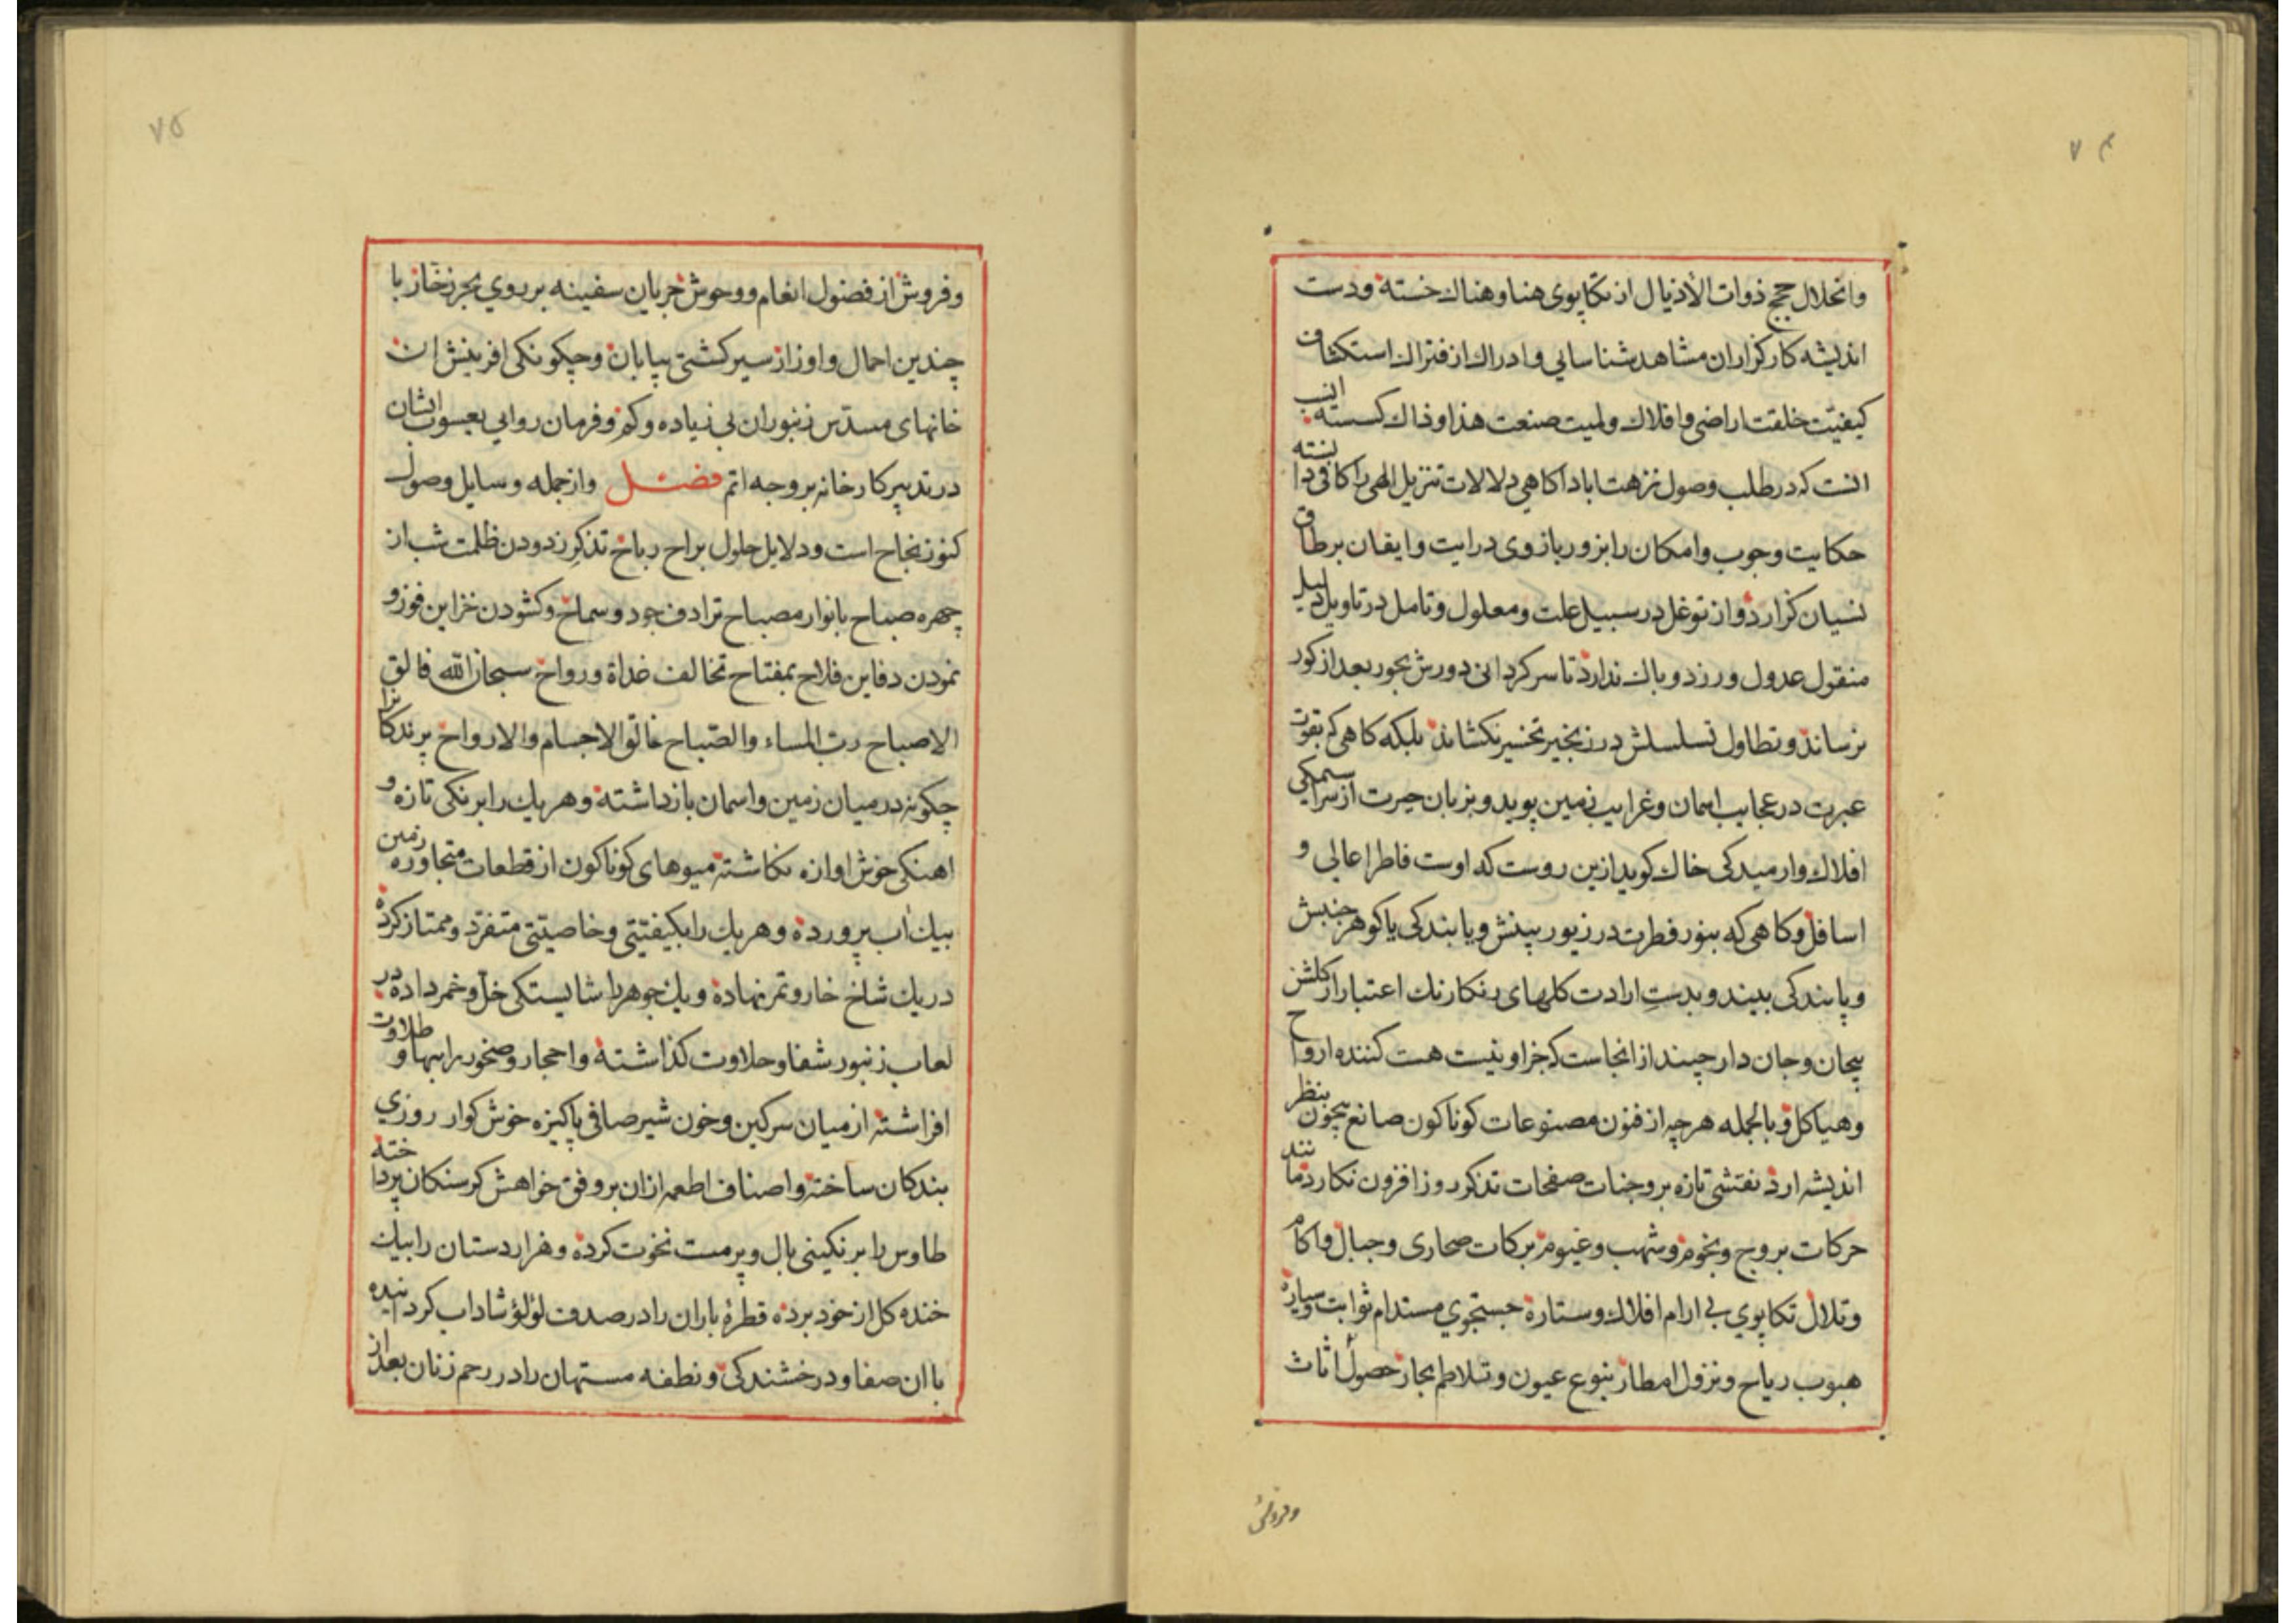 ۷۴
وانحلال حجج ذوات الأذیال از تکاپوی هنا وهناك خسته ودست
اندیشه کارکزاران مشاهد شناسایی وادراك از فتراك استکشاف
کیفیّت خلقت اراضی وافلاك ولمیت صنعت هذا وذاك کسسته انسب
انست که در طلب وصول نزهت اباد اکاهی دلالات تنزیل الهی را کافی دانسته
حکایت وجوب وامکان را بزور بازوی درایت وایقان بر طاق
نسیان کزارد واز توغل در سبیل علت ومعلول وتامل در تاویل دلیل
منقول عدول ورزد وباك ندارد تا سرکردانی دورش بحور بعد از کور
نرساند وتطاول تسلسلش در زنجیر تخسیر نکشاند بلکه کاهی که بقوت
عبرت در عجایب اسمان وغرایب زمین پوید وبزبان حیرت از سراسیمکی
افلاك وارمیدکی خاك کوید ازین روست که اوست فاطر اعالی و
اسافل وکاهی که بنور فطرت در زیور بینش ویابندکی یا کوهر جنبش
وپابندکی بیند وبدست ارادت کلهای رنکارنك اعتبار از کلشن
بیجان وجان دار چیند از انجاست که جز او نیست هست کننده ارواح
وهیاکل وبالجمله هر چه از فنون مصنوعات کوناکون صانع بیچون بنظر
اندیشه ارد نقشی تازه بر وجنات صفحات تذکر روز افزون نکارد مانند
حرکات بروج ونجوم وشهب وغیوم برکات صحاری وجبال واکام
وتلال تکاپوي بی ارام افلاك وستاره جستجوي مستدام ثوابت وسیاره
هبوب ریاح ونزول امطار ینبوع عیون وتلاطم بحار حصول اثاث
وفروش
۷۵
وفروش از فضول انعام ووحوش جریان سفینه بر روي بحر زخار با
چندین احمال واوزار سیر کشتی بیابان وچکونکی افرینش ان
خانهای مسدّس زنبوران بی زیاده وکم وفرمان روایی یعسوب ایشان
در تدبیر کارخانه بر وجه اتم فصل وازجمله وسایل وصول
کنوز نجاح است ودلایل حلول براح رباح تذکر زدودن ظلمت شب از
چهره صباح بانوار مصباح ترادف جود وسماح وکشودن خزاین فوز و
نمودن دفاین فلاح بمفتاح تخالف غداة ورواح سبحان الله فالق
الاصباح ربّ المساء والصّباح خالق الاجسام والارواح پرندکانرا
چکونه در میان زمین واسمان باز داشته وهر یك را برنکی تازه و
اهنکی خوش اوازه نکاشته میوهای کوناکون از قطعات متجاوره زمین
بیك آب پرورده وهر یك را بکیفیّتی وخاصیّتی متفرّد وممتاز کرده
در یك شاخ خار وتمر نهاده ویك جوهر را شایستکی خلّ وخمر داده در
لعاب زنبور شفا وحلاوت کذاشته واحجار وصخور را بهاو طلاوت
افراشته از میان سرکین وخون شیر صافی پاکیزه خوش کوار روزي
بندکان ساخته واصناف اطعمه از ان بر وفق خواهش کرسنکان پرداخته
طاوس را برنکینی بال وپر مست نخوت کرده وهزار دستان را بیك
خنده کل از خود برده قطرۀ باران را در صدف لؤلؤ شاداب کردانیده
با ان صفا ودرخشندکی ونطفه مستهان را در رحم زنان بعد از